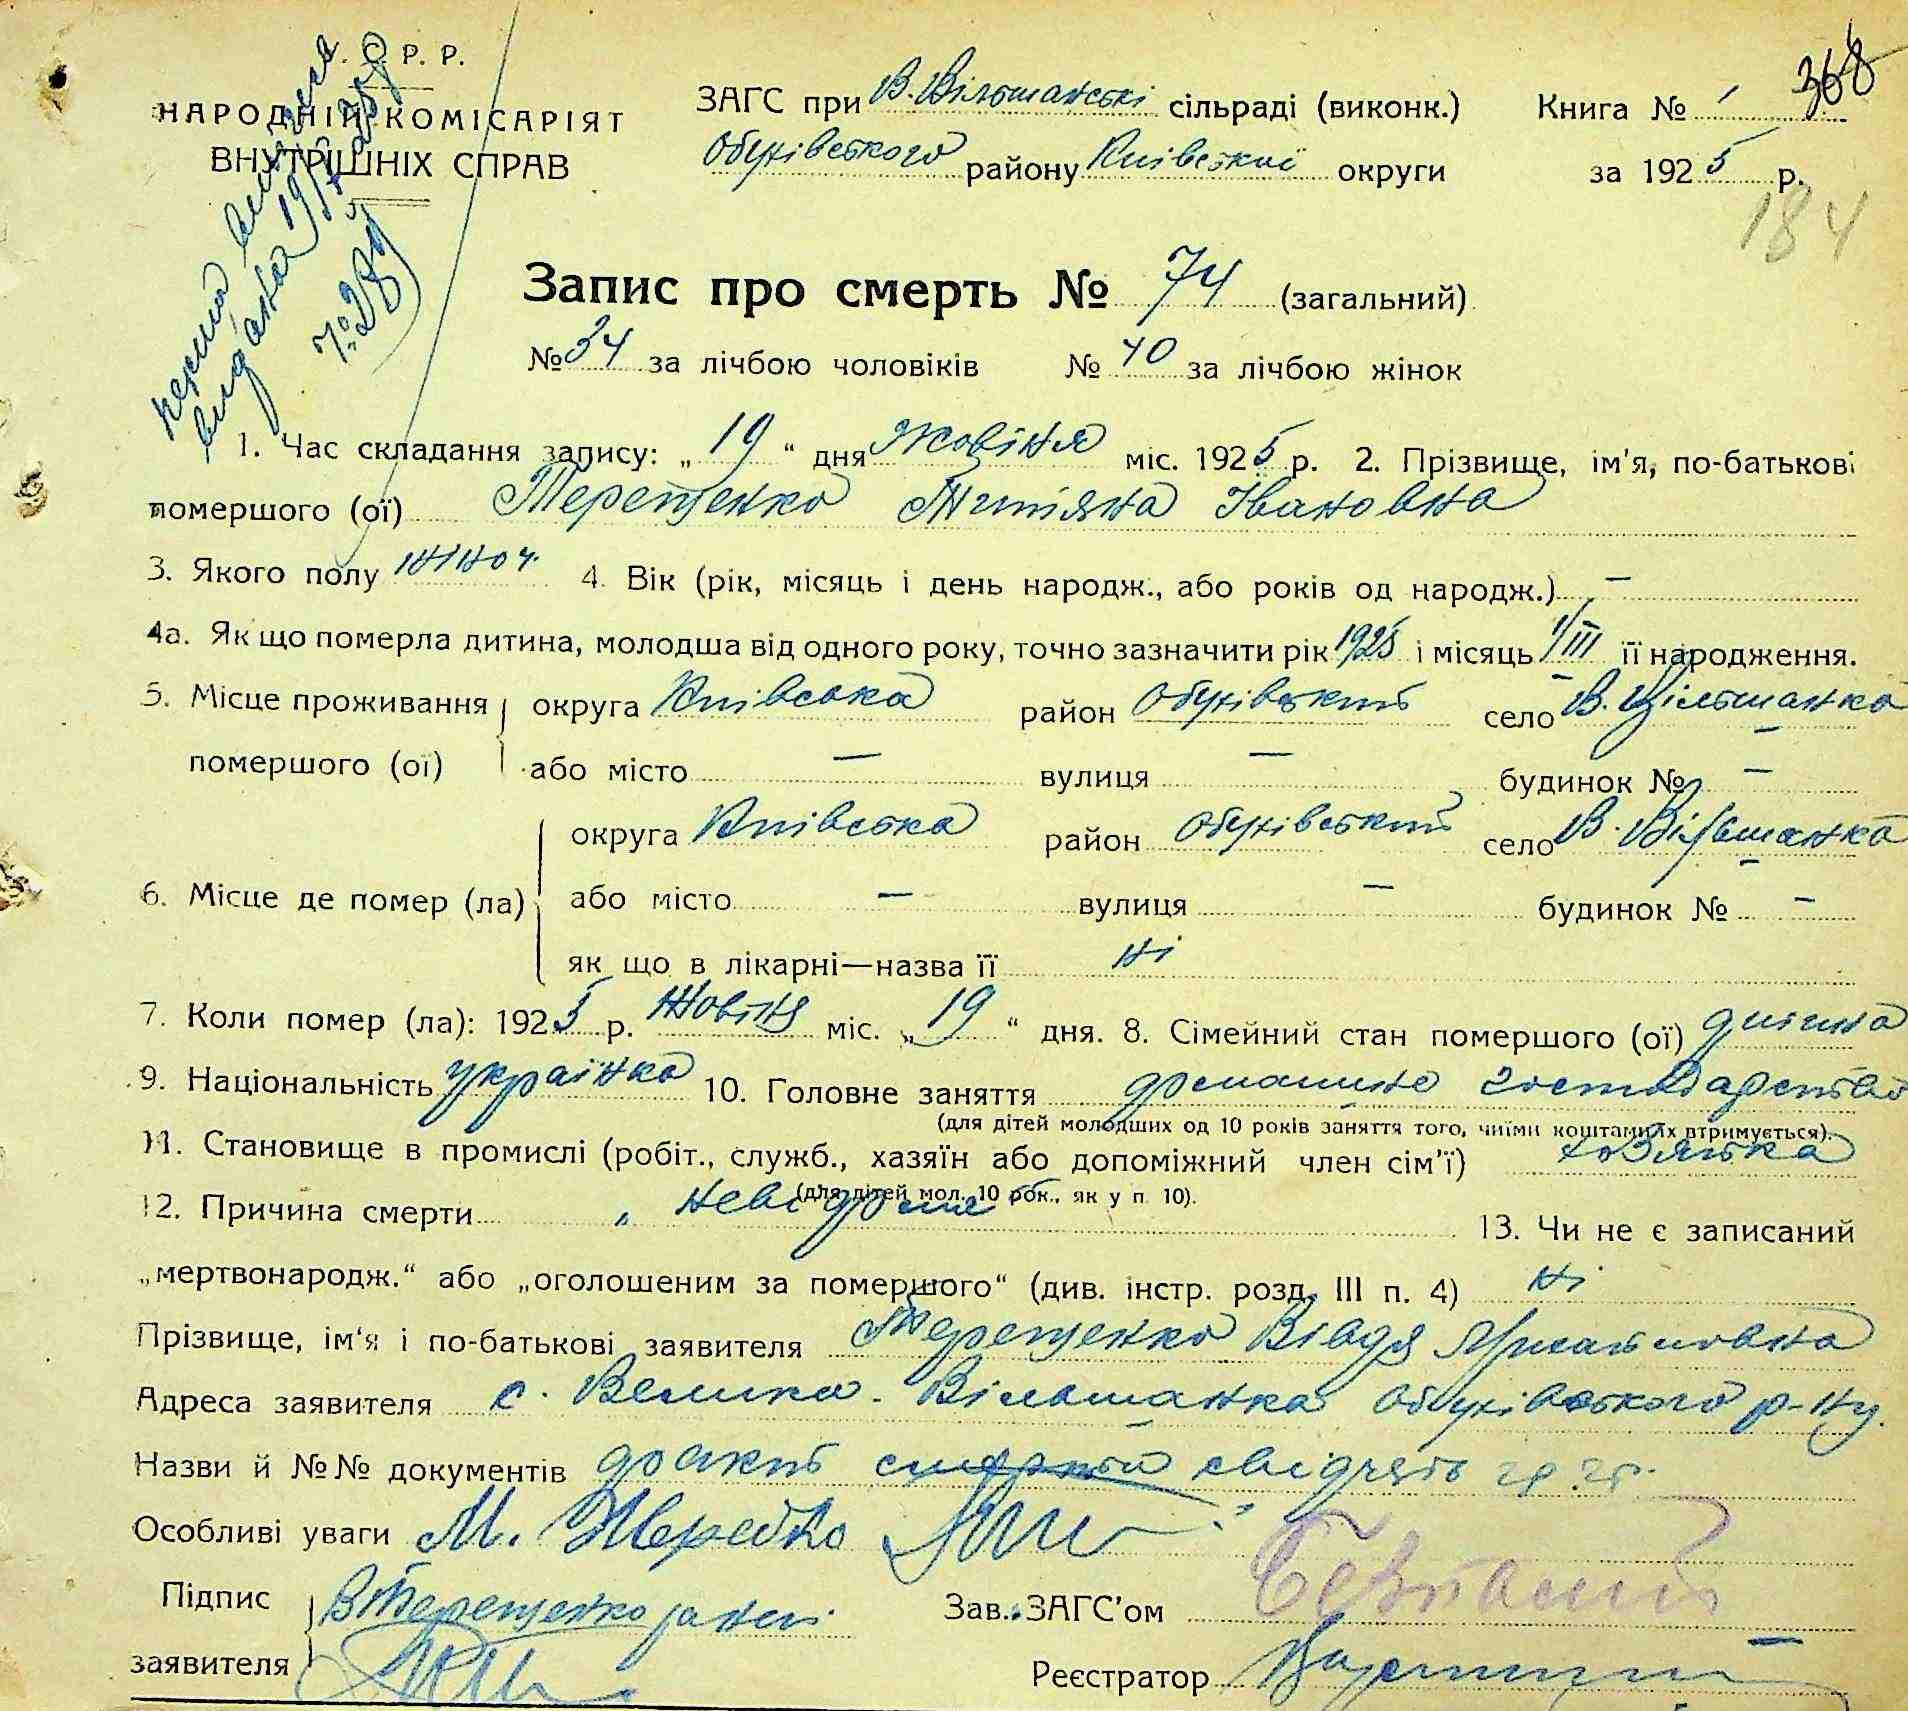 . С. Р. Р.
НАРОДНІЙ КОМІСАРІЯТ
ВНУТРІШНІХ СПРАВ
видана
ЗАГС при В. Вільшанські сільраді (виконк.)
Обухівського району Київскої округи
Книга № 1
368
за 1925 р.
184
Запис про смерть № 74 (загальний)
№ 34 за лічбою чоловіків № 40 за лічбою жінок
1. Час складання запису: „ 19 “ дня Жовтня міс. 1925 р. 2. Прізвище, ім'я, по-батькові
помершого (ої) Терещенко Титяна Івановна
3. Якого полу жіноч. 4. Вік (рік, місяць і день народж., або років од народж.) —
4а. Як що померла дитина, молодша від одного року, точно зазначити рік 1925 і місяць 1/III її народження.
5. Місце проживання округа Київська район Обухівський село В. Вільшанка
помершого (ої) або місто — вулиця — будинок № —
округа Київська район Обухівський село В. Вільшанка
6. Місце де помер (ла) або місто — вулиця — будинок № —
як що в лікарні—назва її ні
7. Коли помер (ла): 1925 р. Жовтня міс. „ 19 “ дня. 8. Сімейний стан помершого (ої) дитина
9. Національність українка 10. Головне заняття домашнє господарство
(для дітей молодших од 10 років заняття того, чиїми коштами їх втримується).
11. Становище в промислі (робіт., служб., хазяїн або допоміжний член сім'ї) хозяйка
(для дітей мол. 10 рок., як у п. 10).
12. Причина смерти „ невідоме 13. Чи не є записаний
„мертвонародж.“ або „оголошеним за помершого“ (див. інстр. розд. III п. 4) ні
Прізвище, ім'я і по-батькові заявителя Терещенко Вівдя
Адреса заявителя с. Велика-Вільшанка Обухівського р-ну.
Назви й №№ документів
Особливі уваги М.
Підпис В Терещенко
заявителя
Зав. ЗАГС'ом
Реєстратор